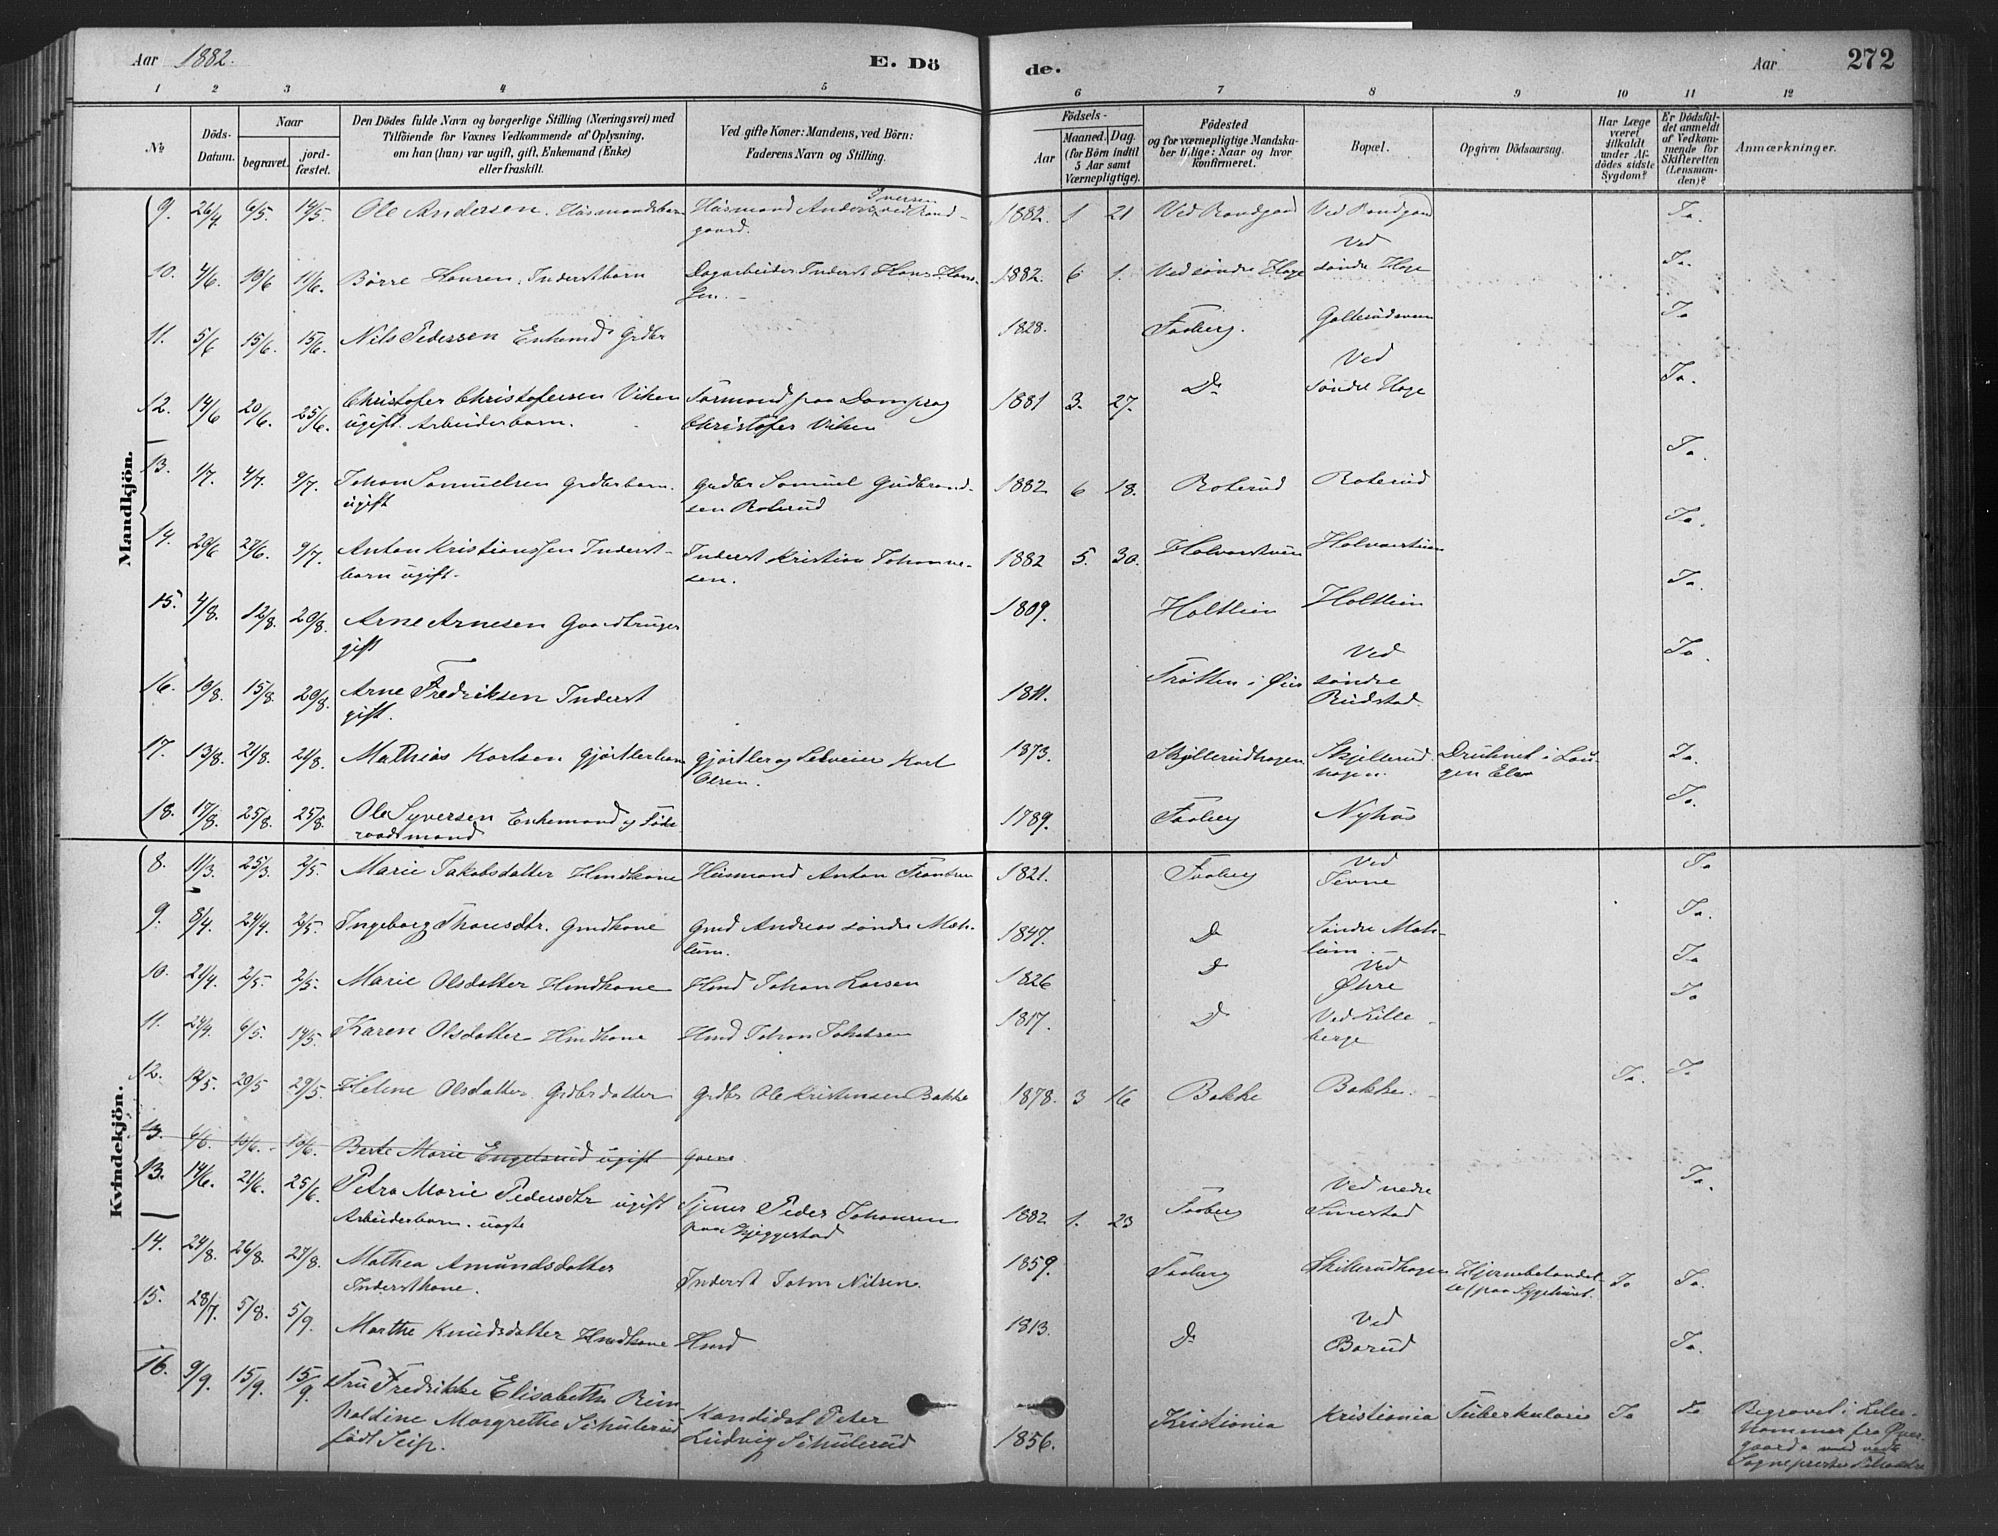 Aar 1882.
E. Dö de.
Aar
272
1 2 3 4 5 6 7 8 9 10 11 12
№
Döds-Datum.
Naar begravet. jord-fæstet.
Den Dödes fulde Navn og borgerlige Stilling (Næringsvei) med
Tilföiende for Voxnes Vedkommende af Oplysning,
om han (hun) var ugift, gift, Enkemand (Enke)
eller fraskilt.
Ved gifte Koner: Mandens, ved Börn:
Faderens Navn og Stilling.
Födsels-
Aar Maaned. Dag.
(for Börn indtil 5 Aar samt Værnepligtige).
Födested
og for værnepligtige Mandskaber tillige: Naar og hvor konfirmeret.
Bopæl.
Opgiven Dödsaarsag.
Har Læge været tilkaldt under Afdödes sidste Sygdom?
Er Dödsfaldet anmeldt af Vedkommende for Skifteretten (Lensmanden)?
Anmærkninger.
Mandkjön.
9. 26/4 6/5. 14/5. Ole Andersen. Husmandsbarn Husmand Anders Iversen ved Rand-
gaard. 1882. 1 21 Ved Randgaard Ved Randgaard Ja.
10. 4/6. 10/6 11/6. Börre Hansen. Inderstbarn Dagarbeider Inderst Hans Han-
sen. 1882. 6 1. Ved söndre Hage Ved söndre Hage Ja.
11. 5/6 15/6. 15/6. Nils Pedersen Enkemd Grdbr 1828. Faaberg. Ja
12. 14/6 20/6. 25/6. Christofer Christofersen Viken
ugift. Arbeiderbarn. Formand paa Dampsag
Christofer Viken 1881 3. 27. Do Ved Söndre Hage Ja.
13. 1/7. 4/7. 9/7. Johan Samuelsen Grdbr barn.
ugift Grdbr Samuel Gudbrand-
sen Roterud 1882 6 18. Roterud Roterud Ja.
14. 20/6 27/6. 9/7. Anton Kristianssen Inderst-
barn ugift. Inderst Kristian Johanne-
sen. 1882 5. 30. Ja.
15. 4/8. 12/8. 20/8. Arne Arnesen Gaardbruger
gift 1809. Holtlien Holtlien Ja.
16. 10/8. 15/8. 20/8. Arne Fredriksen Inderst
gift. 1811. Trötten i Öier Ved söndre Rudstad. Ja.
17. 13/8. 21/8. 21/8. Mathias Karlsen Gjörtlerbarn Gjörtler og Leiveier Karl
Olsen. 1873. Skjellerudhagen Skjellerud-
hagen. Druknet i Lou-
gen Elv Ja.
18. 17/8. 25/8. 25/8. Ole Syversen Enkemand og Föde-
raadsmand 1789. Faaberg Nyhus Ja.
Kvindekjön.
8. 11/3. 25/3. 2/5. Marie Jakobsdatter Hmdkone Husmand Anton 1821. Faaberg Ved Jevne Ja
9. 8/4. 24/4. 2/5. Ingeborg Gmdkone Gmd Andreas söndre Mæh-
lum. 1847. Do Söndre Mæh-
lum. Ja.
10. 21/4. 2/5. 2/5. Marie Olsdatter Hmdkone Hmd Johan Larsen 1826 Do Ved Öhre Ja
11. 24/4. 6/5. 14/5. Karen Olsdatter Hmdkone Hmd Johan 1817. Do Ved Lille-
berge Ja
12. 12/5. 20/5 29/5. Helene Olsdatter Grdbrdatter Grdbr Ole Kristensen Bakke 1878. 3 16 Bakke Bakke. Ja. Ja
13. 6/6. 10/6. 10/6. Berte Marie Engelsrud ugift
13. 14/6. 21/6. 25/6. Petra Marie Pedersdtr ugift
Arbeiderbarn. uægte Tjener Peder Johansen
paa Skjeggestad 1882 1. 23 Faaberg Ved nedre
Smestad Ja.
14. 24/8. 26/8. 27/8. Mathea Amundsdatter
Inderstkone. Inderst Johan Nilsen. 1859. Faaberg Skillerudhagen Hjernebetændel-
se (paa Sygehuset. Ja Ja.
15. 28/7. 5/8. 5/9. Marthe Knudsdatter Hmdkone Hmd 1813. Do Ved Borud Ja.
16. 9/9. 15/9. 15/9. Fru Fredrikke Elisabeth Rein-
holdine Margrethe Schulerud
född Seip. Kandidat Peter
Ludvig Schulerud 1856. Kristiania Kristiania Tuberkulose Ja Ja Begravet i Lille-
hammer fra Över-
gaard
Sogneprest